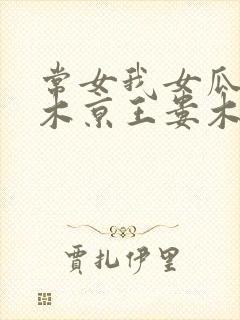 常女我女瓜
木京王娄木
贾扎伊里